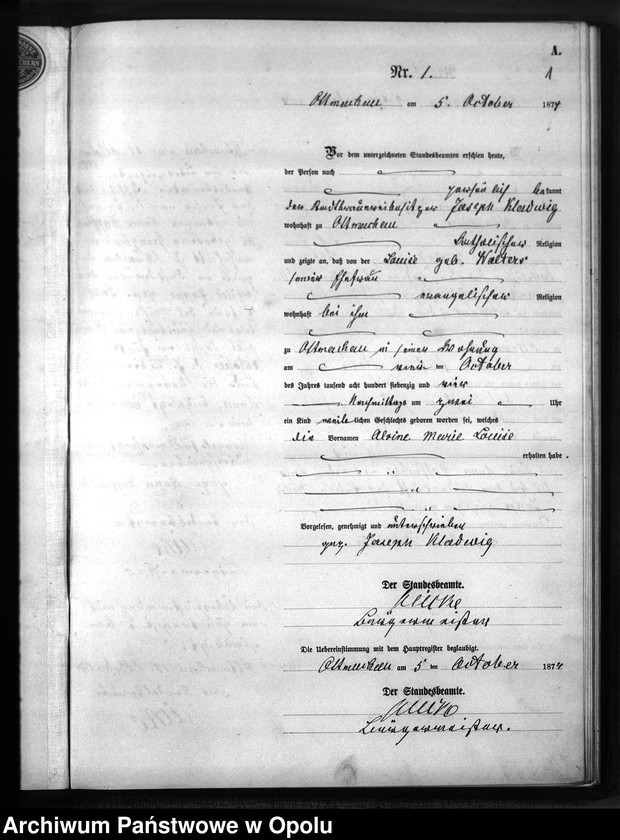 A.
Nr. 1.
1
Ottmachau am 5. October 1874
Vor dem unterzeichneten Standesbeamten erschien heute,
der Person nach
persönlich bekannt
den Stadtbrauereibesitzer Joseph Kladwig
wohnhaft zu Ottmachau
katholischer Religion
und zeigte an, daß von der Louise geb. Wolters
seiner Ehefrau
evangelischer Religion
wohnhaft bei ihm
zu Ottmachau in seiner Wohnung
am vierten October
des Jahres tausend acht hundert siebenzig und vier
Nachmittags um zwei Uhr
ein Kind weiblichen Geschlechts geboren worden sei, welches
die Vornamen Alvine Marie Louise
erhalten habe.
Vorgelesen, genehmigt und unterschrieben
gez. Joseph Kladwig
Der Standesbeamte.
Bürgermeister
Die Uebereinstimmung mit dem Hauptregister beglaubigt.
Ottmachau am 5 ten October 1874
Der Standesbeamte.
Bürgermeister.
Archiwum Państwowe w Opolu